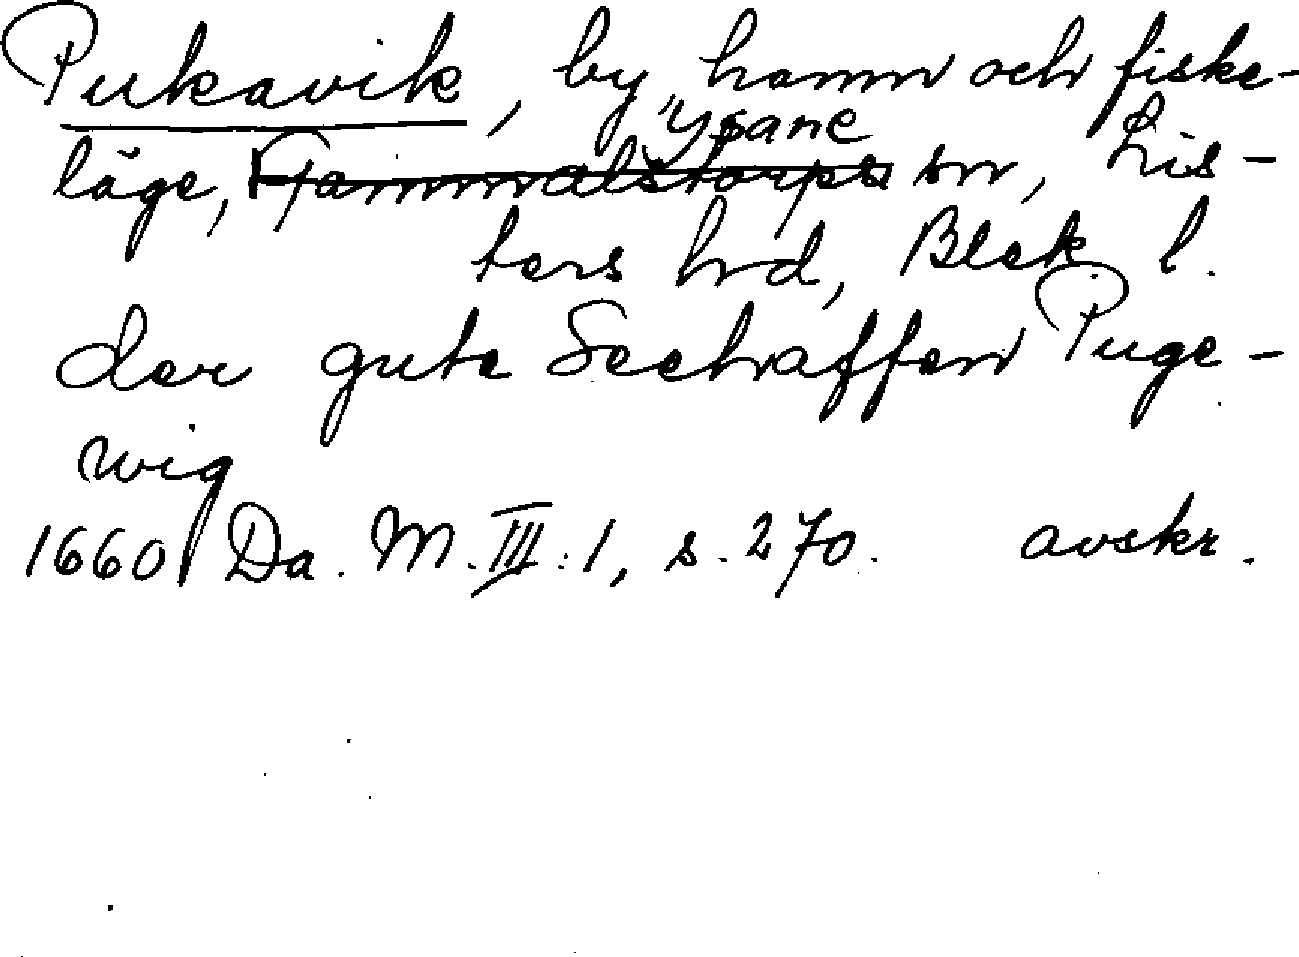 Pukavik, by, hamn och fiske-
läge, Gammalstorps Ysane sn, Lis-
ters hrd, Blek. l.
der gute Seehaffen Puge-
wig
1660 Da. M. III:1, s. 270. avskr.